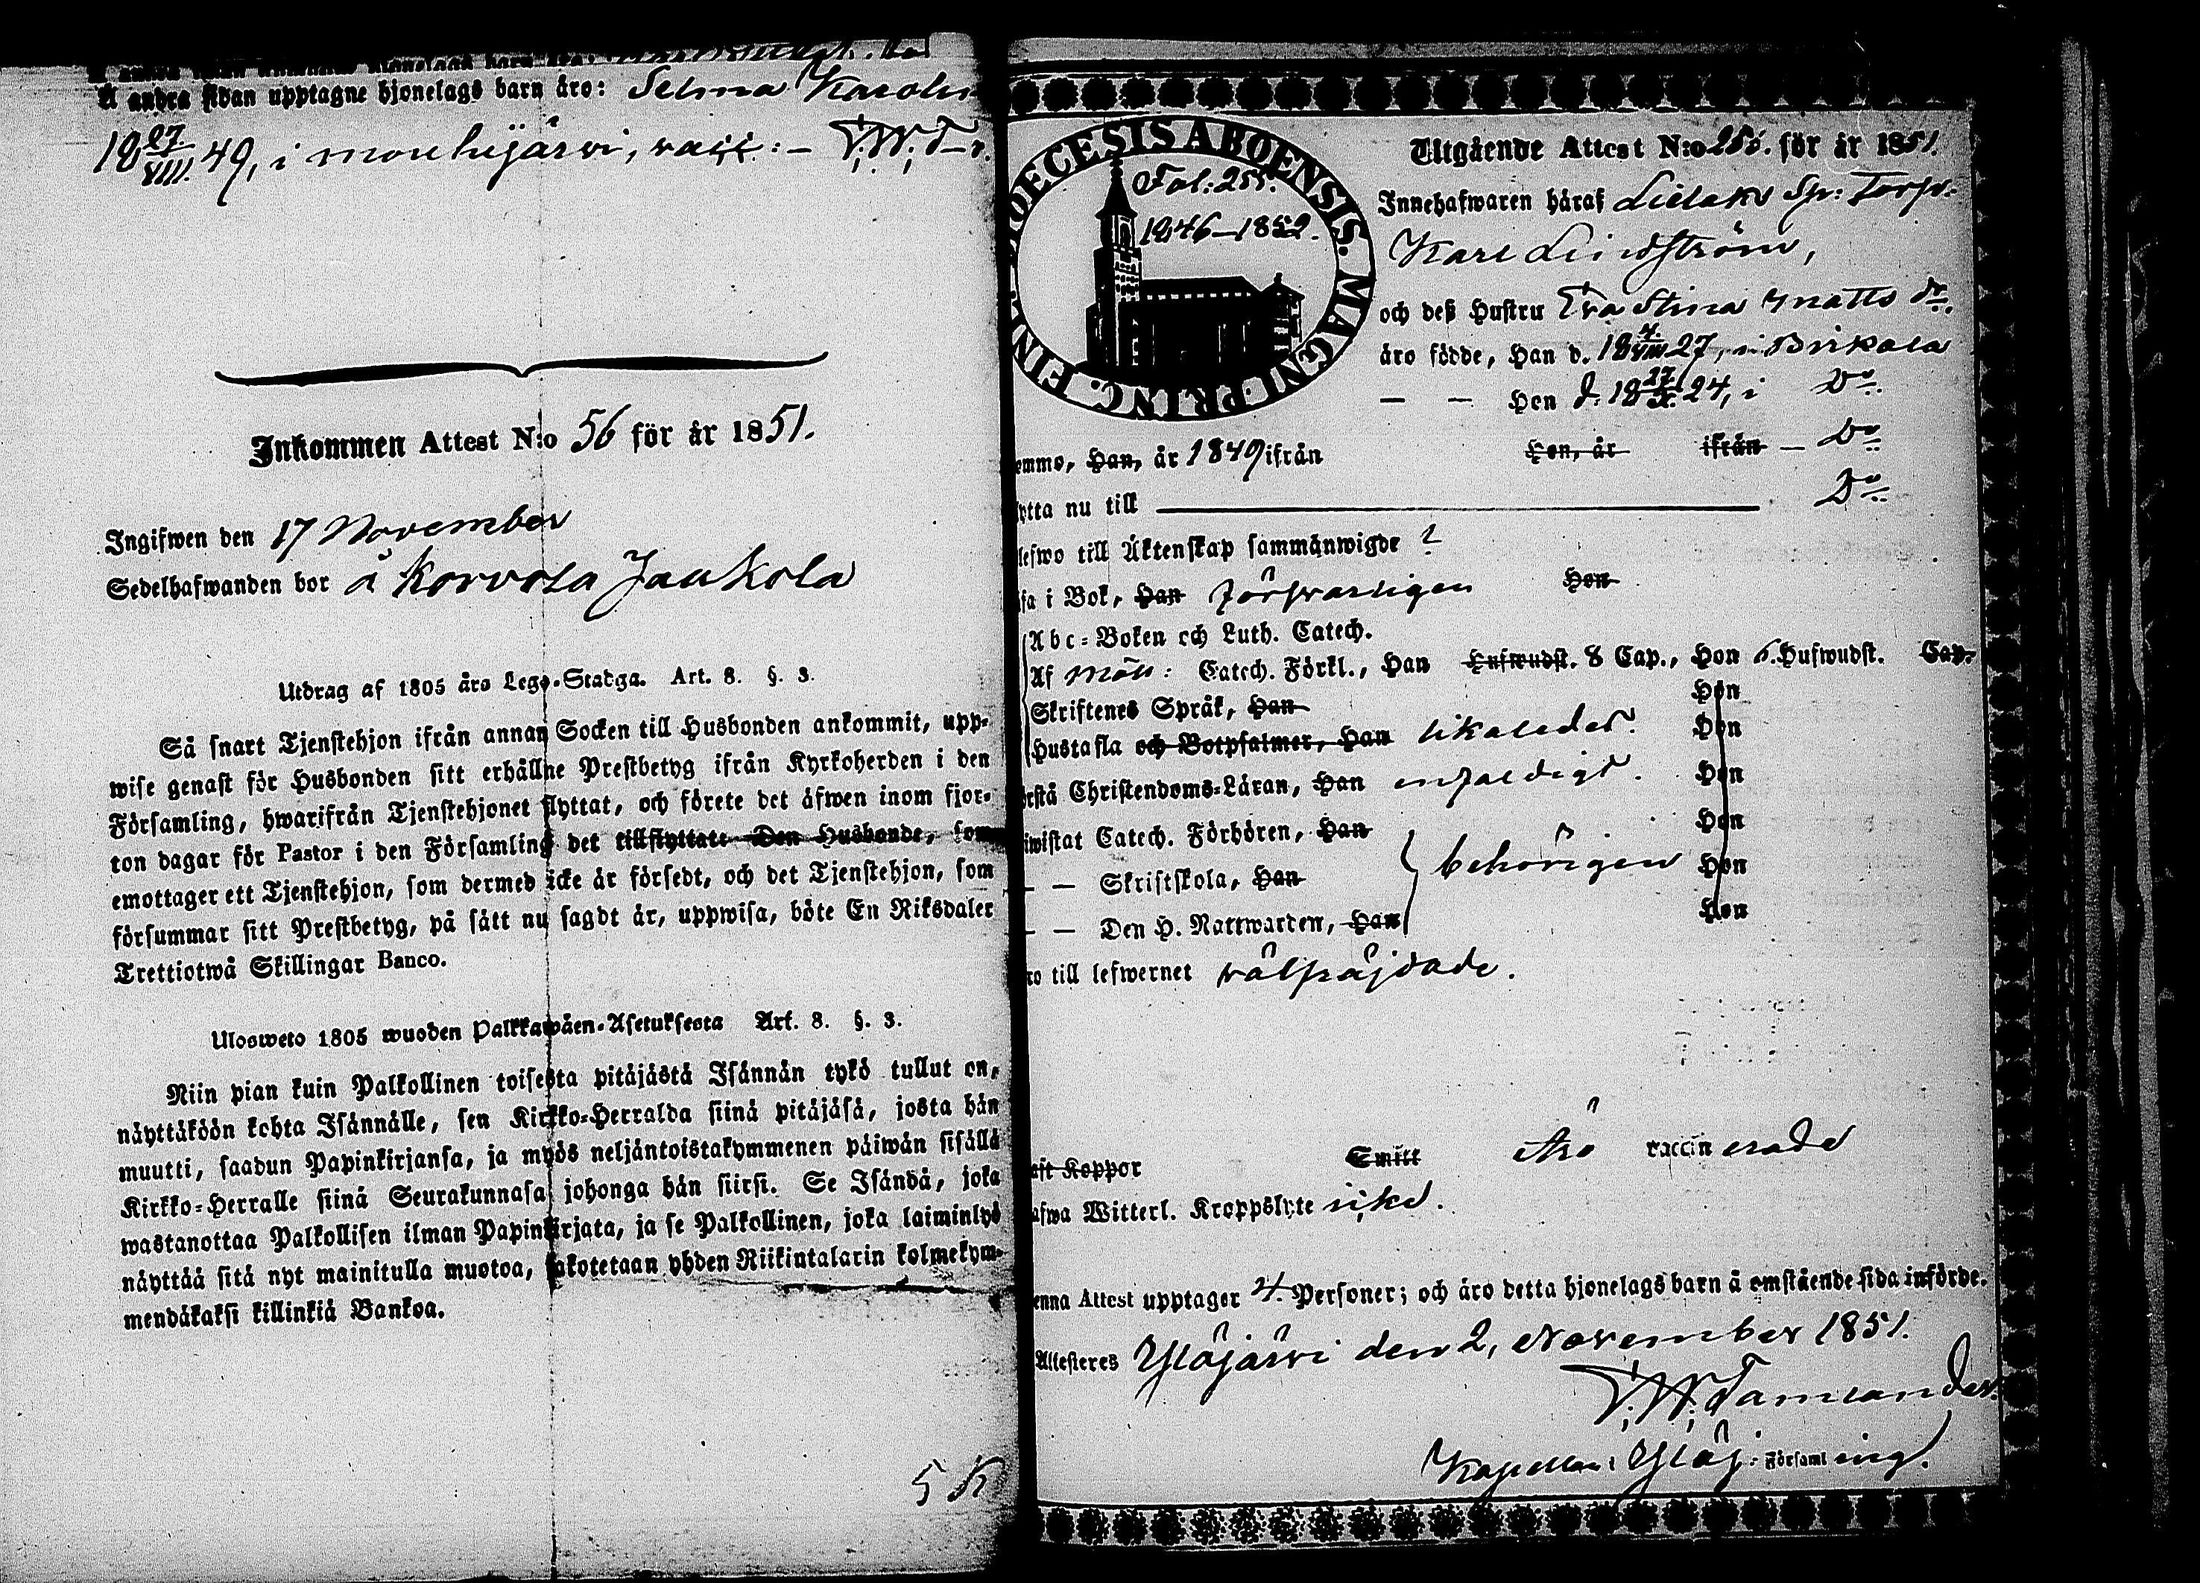 Å andra sidan upptagne hjonelags barn äro: Selma Karolin
18 27/VIII 49, i Mouhijärvi, vacc: – F. W. T–r.
Inkommen Attest N:o 56 för år 1851.
Ingifwen den 17 November
Sedelhafwanden bor å Korvola Jaukola
Utdrag af 1805 års Lego-Stadga. Art. 8. §. 3.
Så snart Tjenstehjon ifrån annan Socken till Husbonden ankommit, upp-
wise genast för Husbonden sitt erhållne Prestbetyg ifrån Kyrkoherden i den
Församling, hwarifrån Tjenstehjonet flyttat, och förete det äfwen inom fjor-
ton dagar för Pastor i den Församling det tillflyttatt Den Husbonde, som
emottager ett Tjenstehjon, som dermed icke är försedt, och det Tjenstehjon, som
försummar sitt Prestbetyg, på sätt nu sagdt är, uppwisa, böte En Riksdaler
Trettiotwå Skillingar Banco.
Ulosweto 1805 wuoden Palkkawäen-Asetuksesta Art. 8. §. 3.
Niin pian kuin Palkollinen toisesta pitäjästä Isännän tykö tullut on,
näyttäköön kohta Isännälle, sen Kirkko-Herralda siinä pitäjäsä, josta hän
muutti, saadun Papinkirjansa, ja myös neljäntoistakymmenen päiwän sisällä
Kirkko-Herralle siinä Seurakunnasa johonga hän siirsi. Se Isändä, joka
wastanottaa Palkollisen ilman Papinkirjata, ja se Palkollinen, joka laiminlyö
näyttää sitä nyt mainitulla muotoa, sakotetaan yhden Riikintalarin kolmekym-
mendäkaksi killinkiä Bankoa.
5 K
DIOECESIS ABOENSIS. MAGNI. PRINC. FIN
Fol: 255.
1846–1852.
Utgående Attest N:o 255. för år 1851.
Innehafwaren häraf Lielaks Sp: Torp.
Karl Lindström,
och deß Hustru Eva Stina Matts dr.
äro födde, Han d. 18 4/VIII 27, i Birkala
— — Hon d. 18 17/X 24, i Do.
emmo, Han, år 1849 ifrån Hon, år ifrån – Do
ytta nu till Do
lefwo till Äktenskap sammanwigde ?
äsa i Bok, Han försvarligen Hon
Abc-Boken och Luth. Catech.
Af Möll: Catech. Förkl., Han Hufwudst. 8 Cap., Hon 6. Hufwudst. Cap.
Skriftenes Språk, Han Hon
Hustafla och Botpsalmer, Han likaledes. Hon
örstå Christendoms-Läran, Han enfaldigt. Hon
iwistat Catech. Förhören, Han Hon
— — Skriftskola, Han behörigen Hon
— — Den H. Nattwarden, Han Hon
ro till lefwernet välfräjdade.
aft Koppor Smitt Äro vaccinerade
afwa Witterl. Kroppslyte icke.
enna Attest upptager 4. Personer; och äro detta hjonelags barn å omstående sida införde.
Attesteres Ylöjärvi den 2, November 1851.
F. W. Tamlander.
Kapellan i Ylöj: Församling.